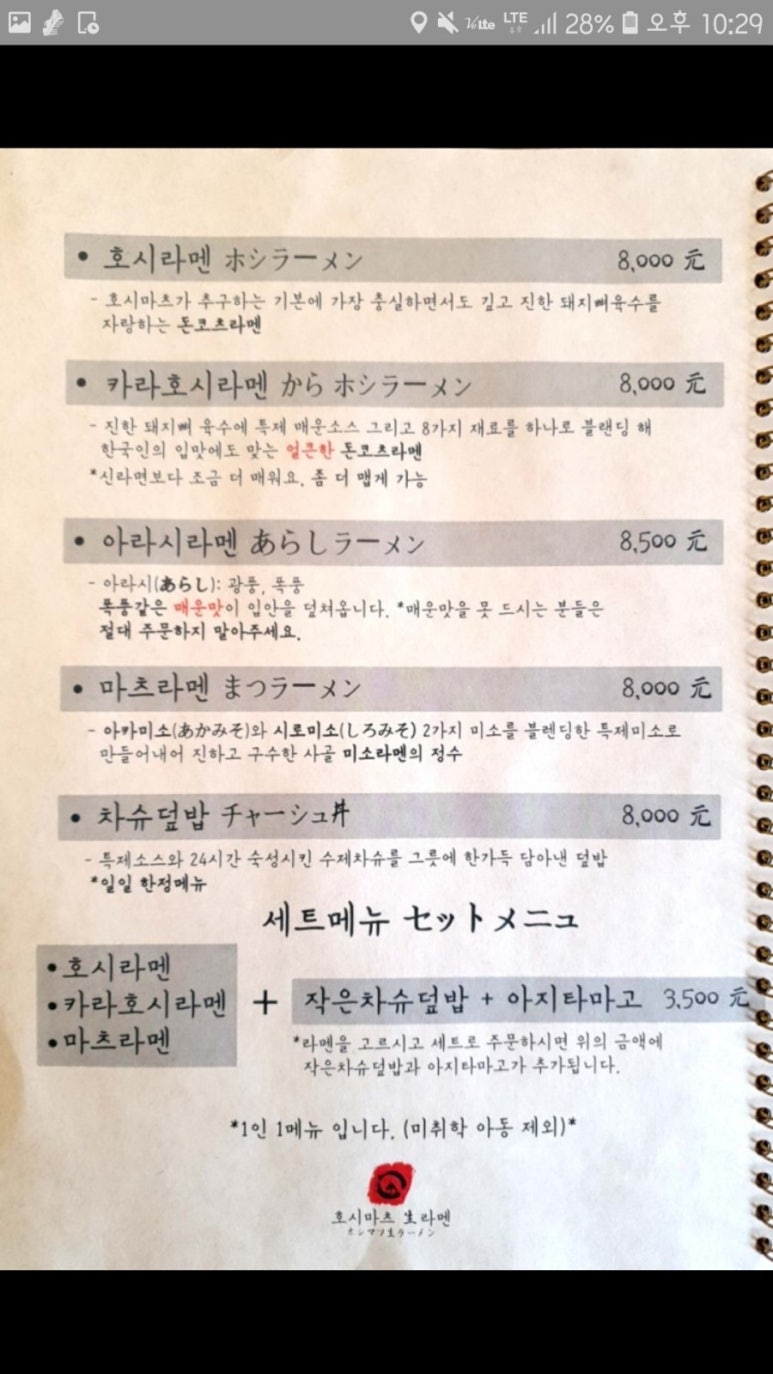 LTE 28% 오후 10:29
• 호시라멘 ホシラーメン 8,000 元
- 호시마츠가 추구하는 기본에 가장 충실하면서도 깊고 진한 돼지뼈육수를
자랑하는 돈코츠라멘
• 카라호시라멘 から ホシラーメン 8,000 元
- 진한 돼지뼈 육수에 특제 매운소스 그리고 8가지 재료를 하나로 블랜딩 해
한국인의 입맛에도 맞는 얼큰한 돈코츠라멘
*신라면보다 조금 더 매워요. 좀 더 맵게 가능
• 아라시라멘 あらしラーメン 8,500 元
- 아라시(あらし): 광풍, 폭풍
폭풍같은 매운맛이 입안을 덮쳐옵니다. *매운맛을 못 드시는 분들은
절대 주문하지 말아주세요.
• 마츠라멘 まつラーメン 8,000 元
- 아카미소(あかみそ)와 시로미소(しろみそ) 2가지 미소를 블렌딩한 특제미소로
만들어내어 진하고 구수한 사골 미소라멘의 정수
• 차슈덮밥 チャーシュ丼 8,000 元
- 특제소스와 24시간 숙성시킨 수제차슈를 그릇에 한가득 담아낸 덮밥
*일일 한정메뉴
세트메뉴 セット メニュ
• 호시라멘
• 카라호시라멘 + 작은차슈덮밥 + 아지타마고 3,500 元
• 마츠라멘
*라멘을 고르시고 세트로 주문하시면 위의 금액에
작은차슈덮밥과 아지타마고가 추가됩니다.
*1인 1메뉴 입니다. (미취학 아동 제외)*
호시마츠 生라멘
ホシマツ生ラーメン